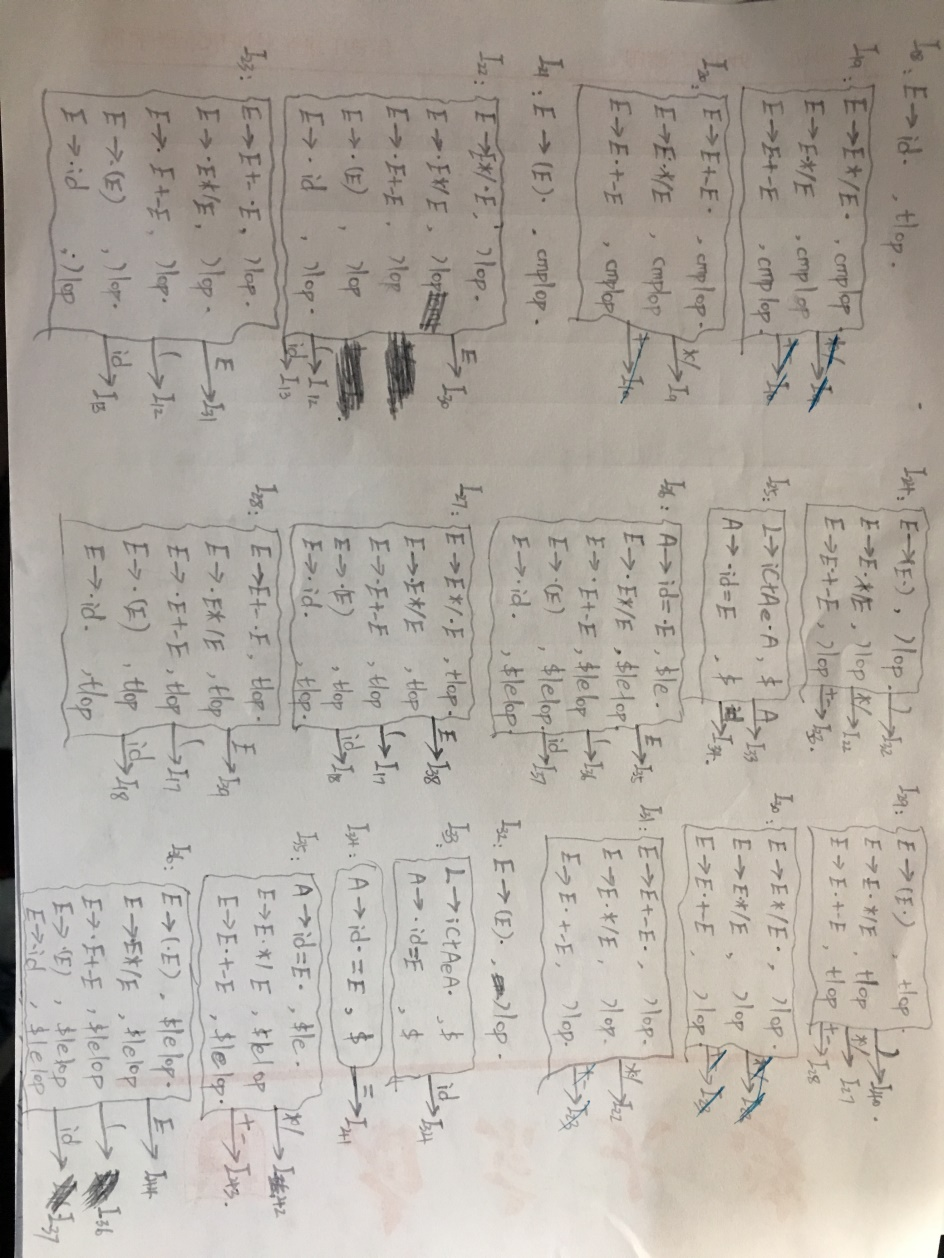 I18: E→id. , t|op.
I19: E→E*/E. , cmp|op.
E→E.*/E , cmp|op
E→E.+-E , cmp|op.
I20: E→E+-E. , cmp|op.
E→E.*/E , cmp|op
E→E.+-E , cmp|op
*/→I9
I21: E→(E). , cmp|op.
I22: E→E*/.E , )|op.
E→.E*/E , )|op
E→.E+-E , )|op
E→.(E) , )|op
E→.id , )|op.
E→I30
(→I12
id→I13
I23: E→E+-.E, )|op.
E→.E*/E, )|op.
E→.E+-E, )|op.
E→.(E) , )|op.
E→.id , )|op
E→I31
(→I12
id→I13
I24: E→(E.) , )|op.
E→E.*/E, )|op
E→E.+-E, )|op
)→I32
*/→I22
+-→I23.
I25: L→iCtAe.A, $
A→.id=E , $
A→I33
id→I34.
I26: A→id=.E, $|e.
E→.E*/E, $|e|op.
E→.E+-E, $|e|op
E→.(E) , $|e|op.
E→.id. , $|e|op.
E→I35
(→I36
id→I37
I27: E→E*/.E, t|op.
E→.E*/E , t|op
E→.E+-E , t|op
E→.(E) , t|op
E→.id. , t|op.
E→I38
(→I17
id→I18
I28: E→E+-.E, t|op.
E→.E*/E , t|op
E→.E+-E, t|op
E→.(E) , t|op
E→.id. , t|op
E→I39
(→I17
id→I18
I29: E→(E.) , t|op.
E→E.*/E, t|op
E→E.+-E , t|op
)→I40.
*/→I27
+-→I28
I30: E→E*/E. , )|op.
E→E.*/E , )|op.
E→E.+-E , )|op
I31: E→E+-E. , )|op.
E→E.*/E, )|op.
E→E.+-E, )|op.
*/→I22
I32: E→(E). , )|op.
I33: L→iCtAeA. , $
A→.id=E , $
id→I34
I34: A→id.=E, $
=→I41
I35: A→id=E. , $|e.
E→E.*/E , $|e|op
E→E.+-E , $|e|op.
*/→I42
+-→I43.
I36: E→(.E) , $|e|op.
E→.E*/E , $|e|op
E→.E+-E, $|e|op
E→.(E) , $|e|op
E→.id , $|e|op
E→I44.
(→I36
id→I37